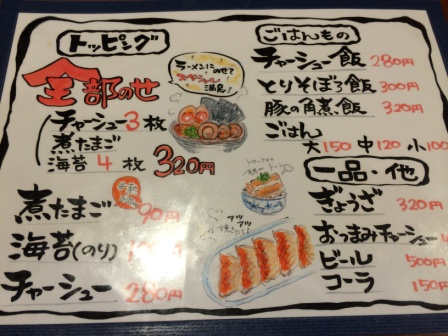 トッピング
全部のせ
チャーシュー3枚
煮たまご
海苔4枚 320円
ラーメンに
のせて
スペシャル
満足!
煮たまご 90円
海苔(のり)
チャーシュー 280円
アツアツ
ごはんもの
チャーシュー飯 280円
とりそぼろ飯 300円
豚の角煮飯 320円
ごはん
大150 中120 小100
一品・他
ぎょうざ 320円
おつまみチャーシュー
ビール 500円
コーラ 150円